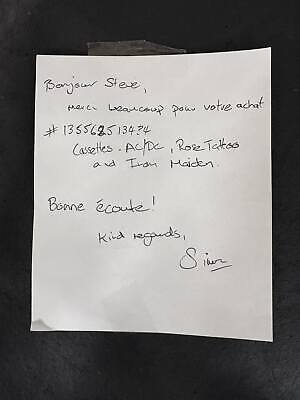 Bonjour Steve,
merci beaucoup pour votre achat
# 135562513434
Cassettes. AC/DC, Rose Tattoo
and Iron Maiden.
Bonne écoute!
Kind regards,